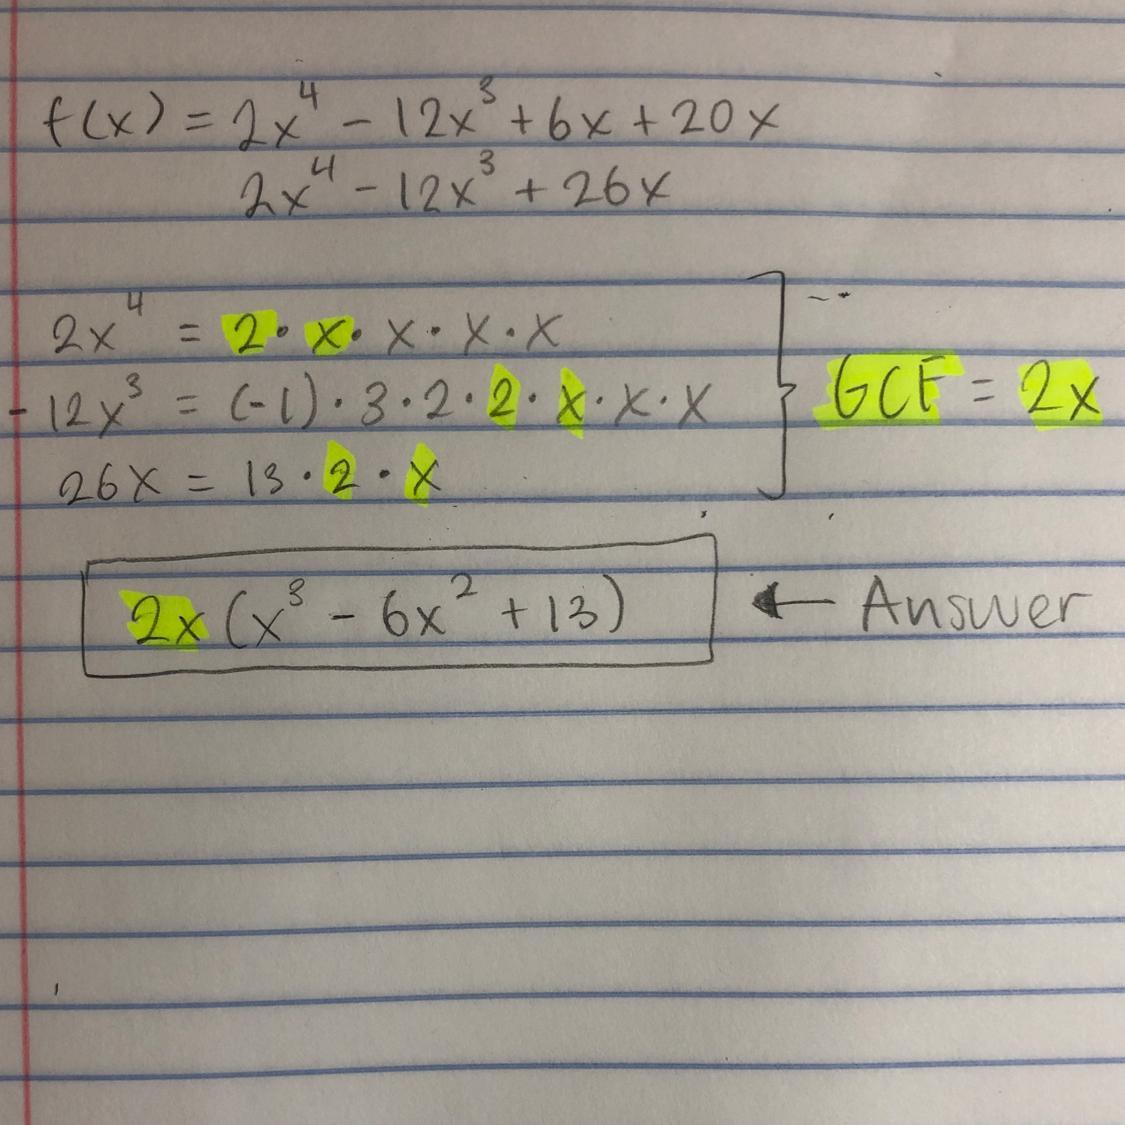 f(x) = 2x⁴ - 12x³ + 6x + 20x
2x⁴ - 12x³ + 26x
2x⁴ = 2 · x · x · x · x
-12x³ = (-1) · 3 · 2 · 2 · x · x · x
26x = 13 · 2 · x
GCF = 2x
2x (x³ - 6x² + 13) ← Answer